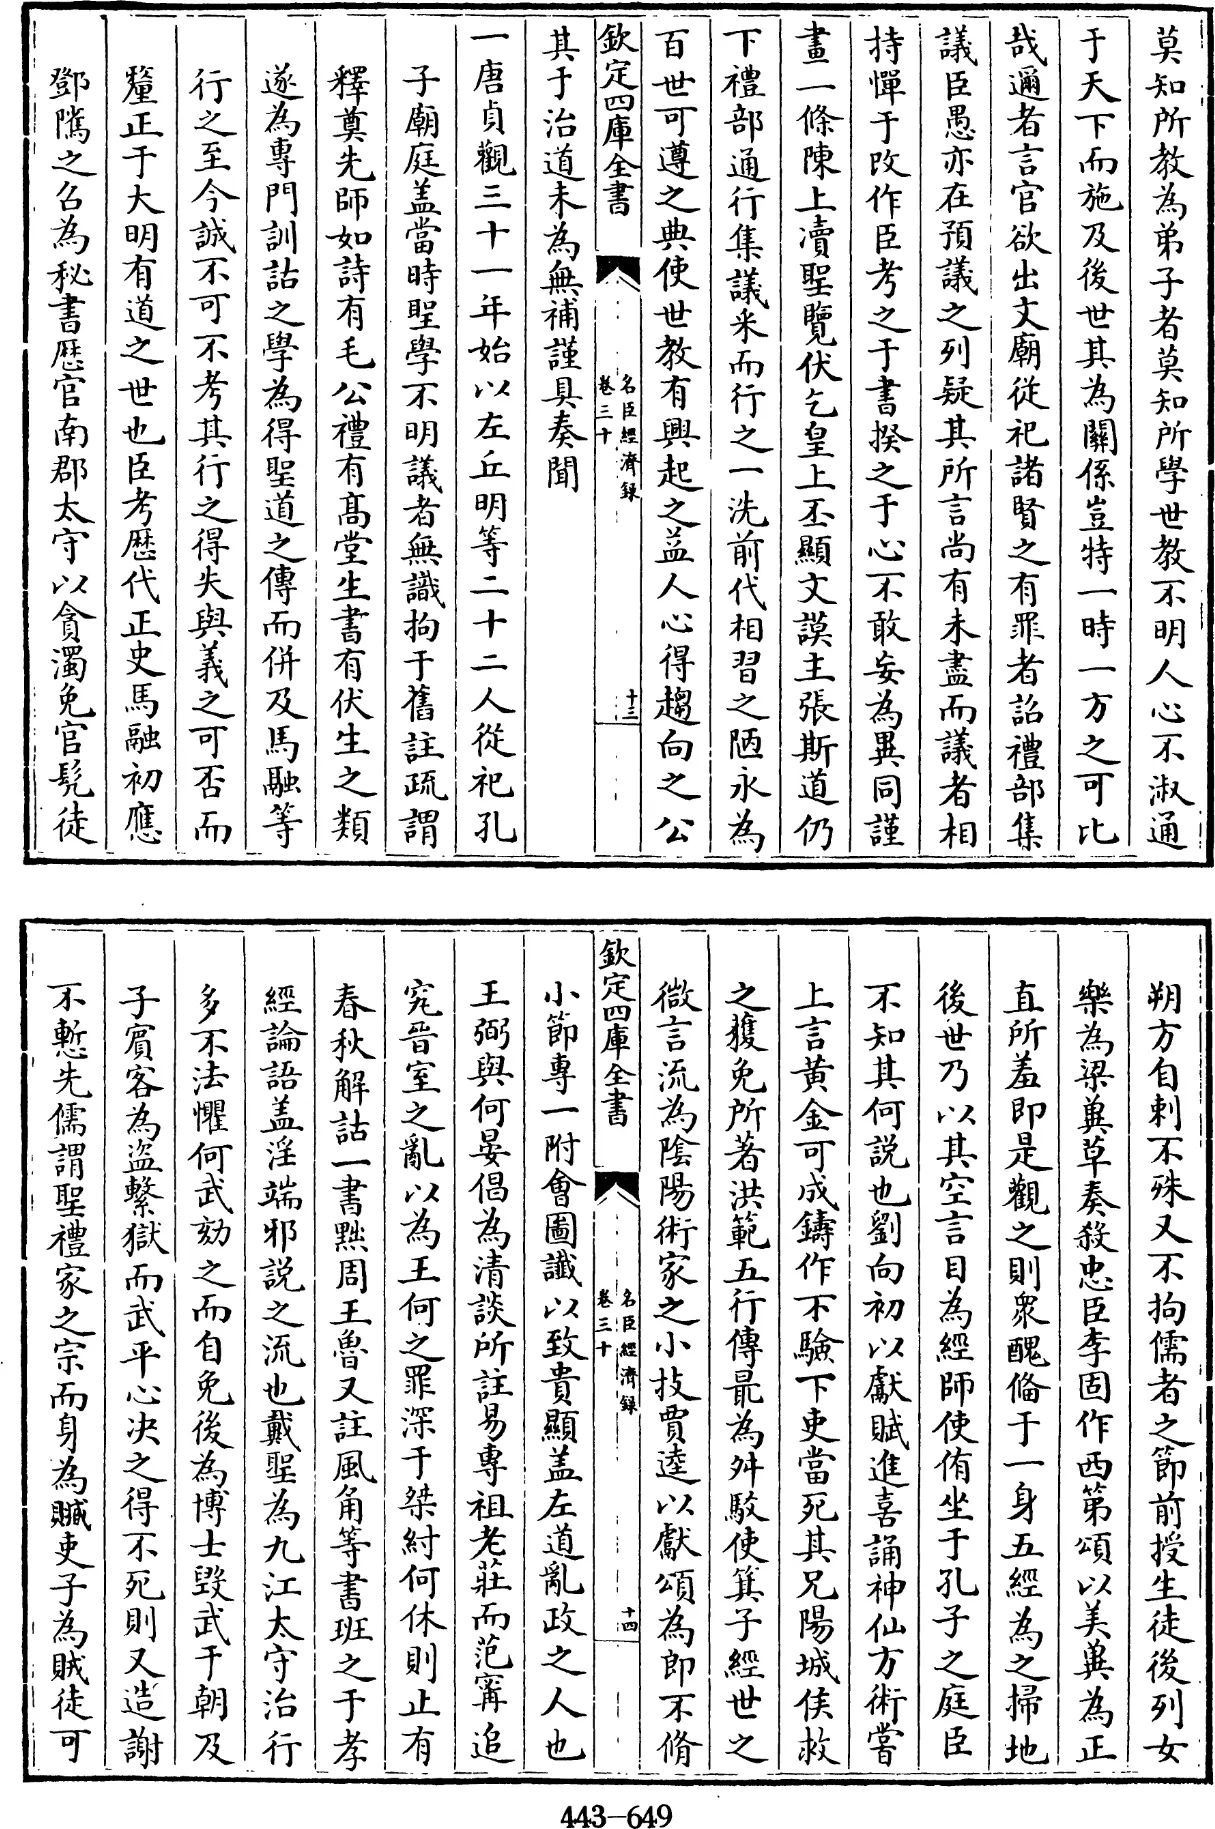 莫知所教為弟子者莫知所學世教不明人心不淑通
于天下而施及後世其為關係豈特一時一方之可比
哉邇者言官欲出文廟從祀諸賢之有罪者詔禮部集
議臣愚亦在預議之列疑其所言尚有未盡而議者相
持憚于改作臣考之于書揆之于心不敢妄為異同謹
畫一條陳上凟聖覽伏乞皇上丕顯文謨主張斯道仍
下禮部通行集議米而行之一洗前代相習之陋永為
百世可遵之典使世教有興起之益人心得趨向之公
欽定四庫全書
名臣經濟録
卷三十
十三
其于治道未為無補謹具奏聞
一唐貞觀三十一年始以左丘明等二十二人從祀孔
子廟庭盖當時聖學不明議者無識拘于舊註疏謂
釋奠先師如詩有毛公禮有髙堂生書有伏生之類
遂為專門訓詁之學為得聖道之傳而併及馬融等
行之至今誠不可不考其行之得失與義之可否而
釐正于大明有道之世也臣考歴代正史馬融初應
鄧隲之召為秘書歴官南郡太守以貪濁免官髡徒
朔方自刺不殊又不拘儒者之節前授生徒後列女
樂為梁兾草奏殺忠臣李固作西第頌以美兾為正
直所羞即是觀之則衆醜偹于一身五經為之掃地
後世乃以其空言目為經師使侑坐于孔子之庭臣
不知其何説也劉向初以獻賦進喜誦神仙方術嘗
上言黄金可成鑄作不驗下吏當死其兄陽城侯救
之獲免所著洪範五行傳最為舛駁使箕子經世之
微言流為陰陽術家之小技賈逵以獻頌為郎不脩
欽定四庫全書
名臣經濟録
卷三十
十四
小節專一附會圖讖以致貴顯盖左道亂政之人也
王弼與何晏倡為清談所註易專祖老莊而范甯追
究晉室之亂以為王何之罪深于桀紂何休則止有
春秋解詁一書黜周王魯又註風角等書班之于孝
經論語盖淫端邪説之流也戴聖為九江太守治行
多不法懼何武劾之而自免後為博士毀武于朝及
子賓客為盗繫獄而武平心决之得不死則又造謝
不慙先儒謂聖禮家之宗而身為贓吏子為賊徒可
443-649